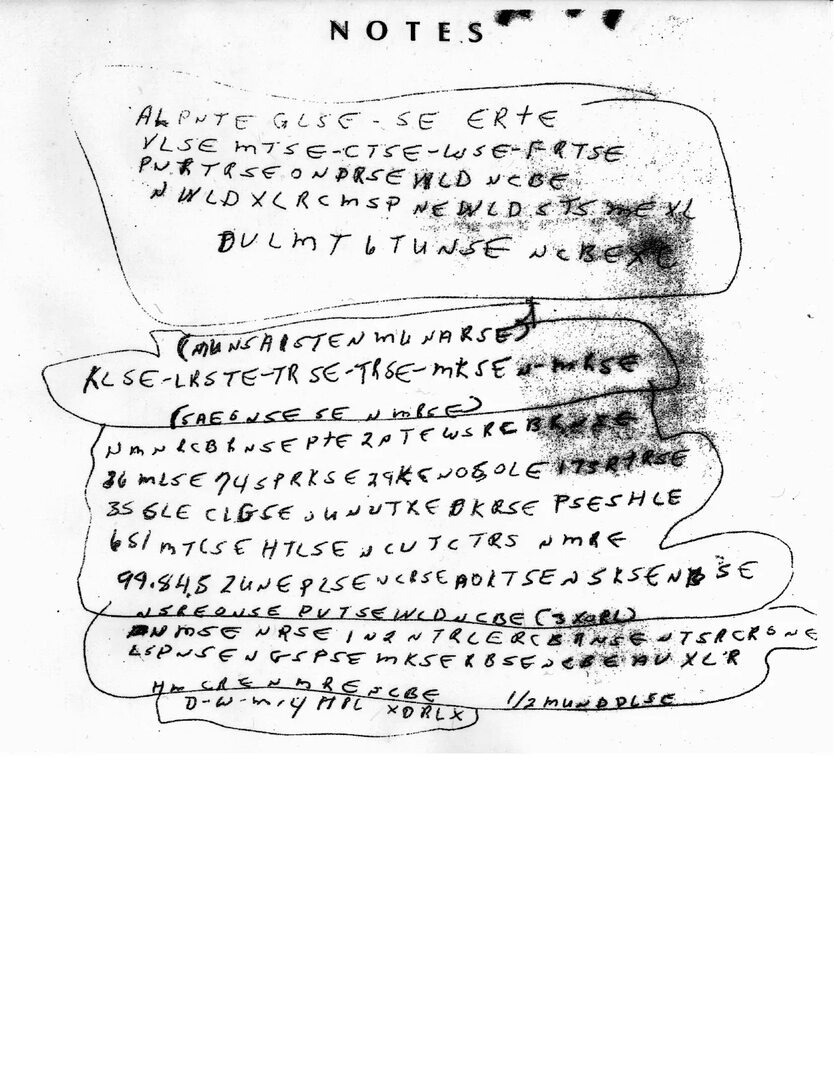 NOTES
ALPNTE GLSE-SE ERTE
VLSE MTSE-CTSE-WSE-FRTSE
PNRTRSEONDRSEWLD NCBE
NWLDXLRCMSP NEWLDSTSMEXL
DULMT6TUNSE NCBEXC
(MUNSAISTENMUNARSE)
KLSE-LRSTE-TRSE-TRSE-MKSEN-MRSE
(SAEGNSESE NMRSE)
NMNRCBRNSEPTE2PTEWSRCBRNSE
36MLSE74SPRKSE29KENOSOLE173RTRSE
35GLE CLGSE UNUTXE DKRSE PSESHLE
651MTCSE HTLSE NCUTCTRS NMRE
99.84.52UNEPLSENCRSEAOKTSENSKSENBSE
NSREONSE PVTSEWLDNCBE(3XORL)
NMSE NRSE IN2NTRLERCBRNSE NTSRCRONE
LSPNSENGSPSE MKSERBSENCBEAVXL'R
HM CRENMRENCBE 1/2MUNDDLSE
D-W-M-4 HPL XDRLX